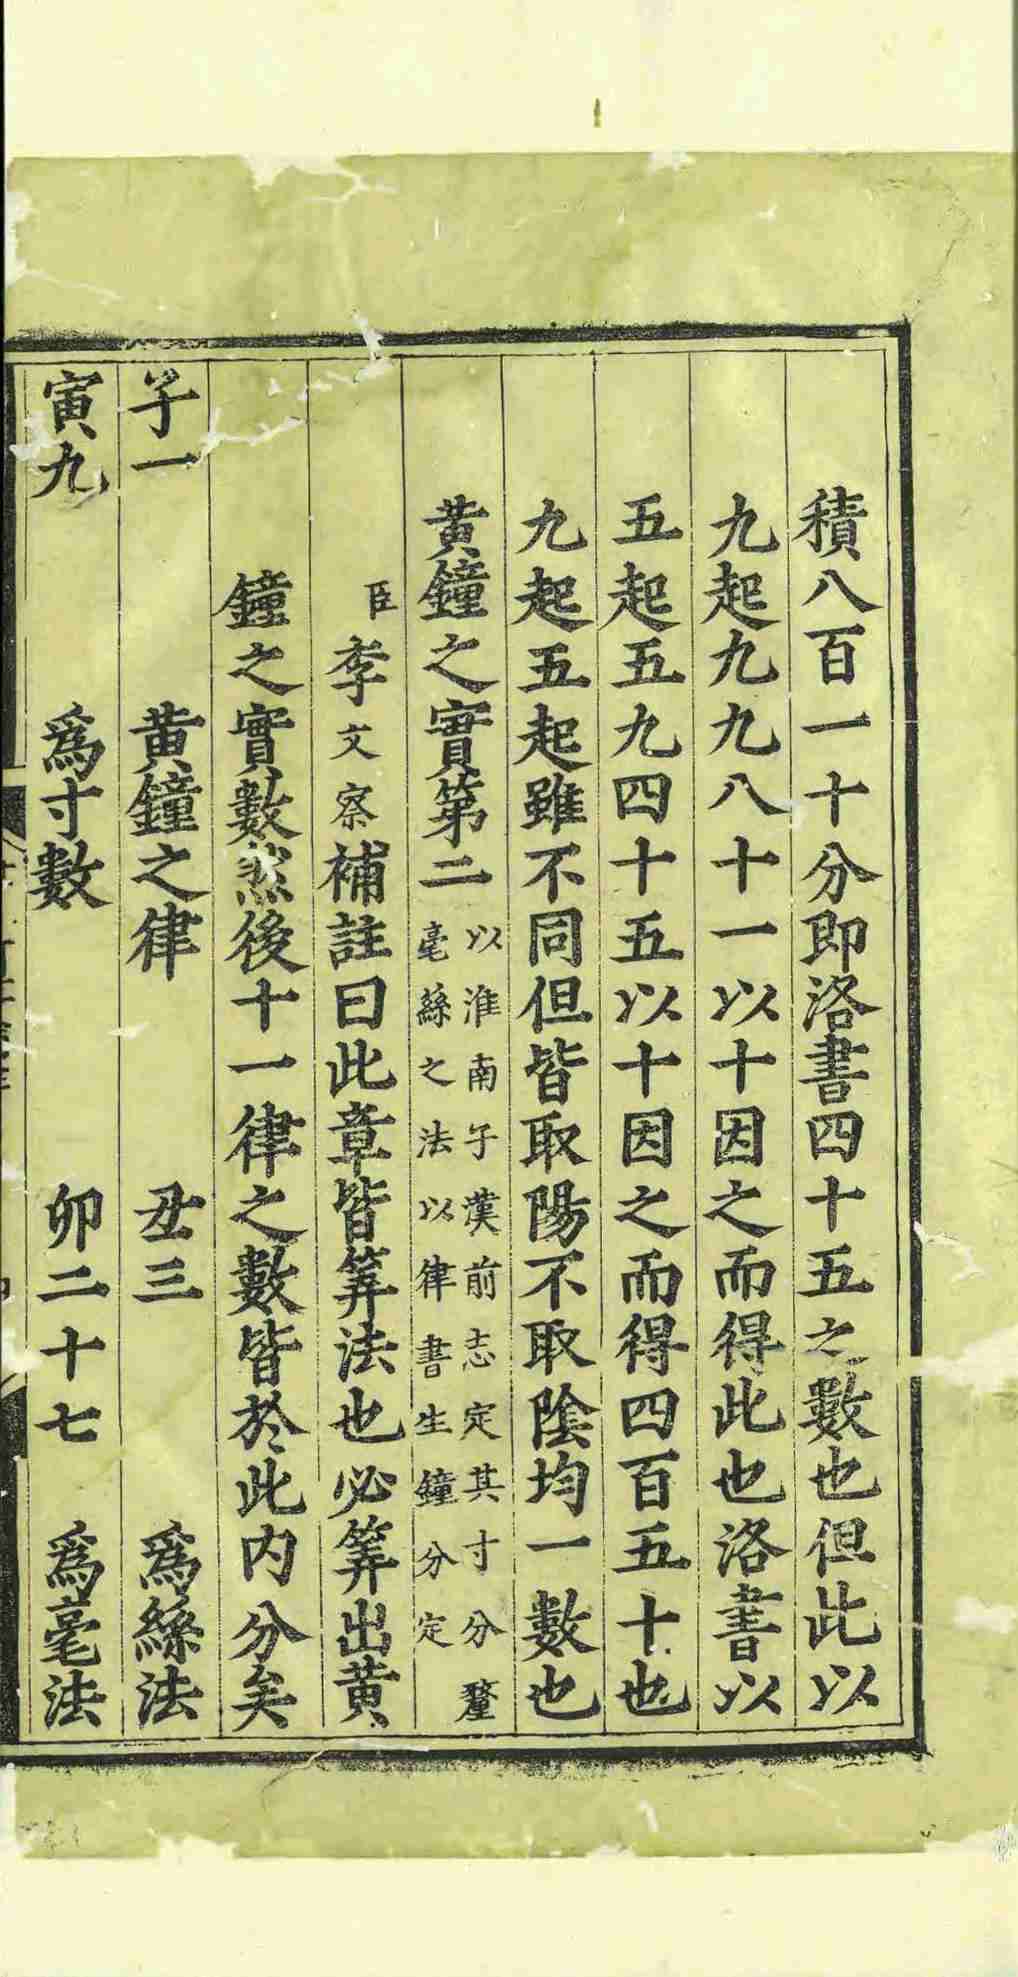 積八百一十分即洛書四十五之數也但此以
九起九九八十一以十因之而得此也洛書以
五起五九四十五以十因之而得四百五十也
九起五起雖不同但皆取陽不取陰均一數也
黃鐘之實第二以淮南子漢前志定其寸分釐
毫絲之法以律書生鐘分定
臣李文察補註曰此章皆筭法也必筭出黃
鐘之實數然後十一律之數皆於此內分矣
子一 黃鐘之律 丑三 爲絲法
寅九 爲寸數 卯二十七 爲毫法